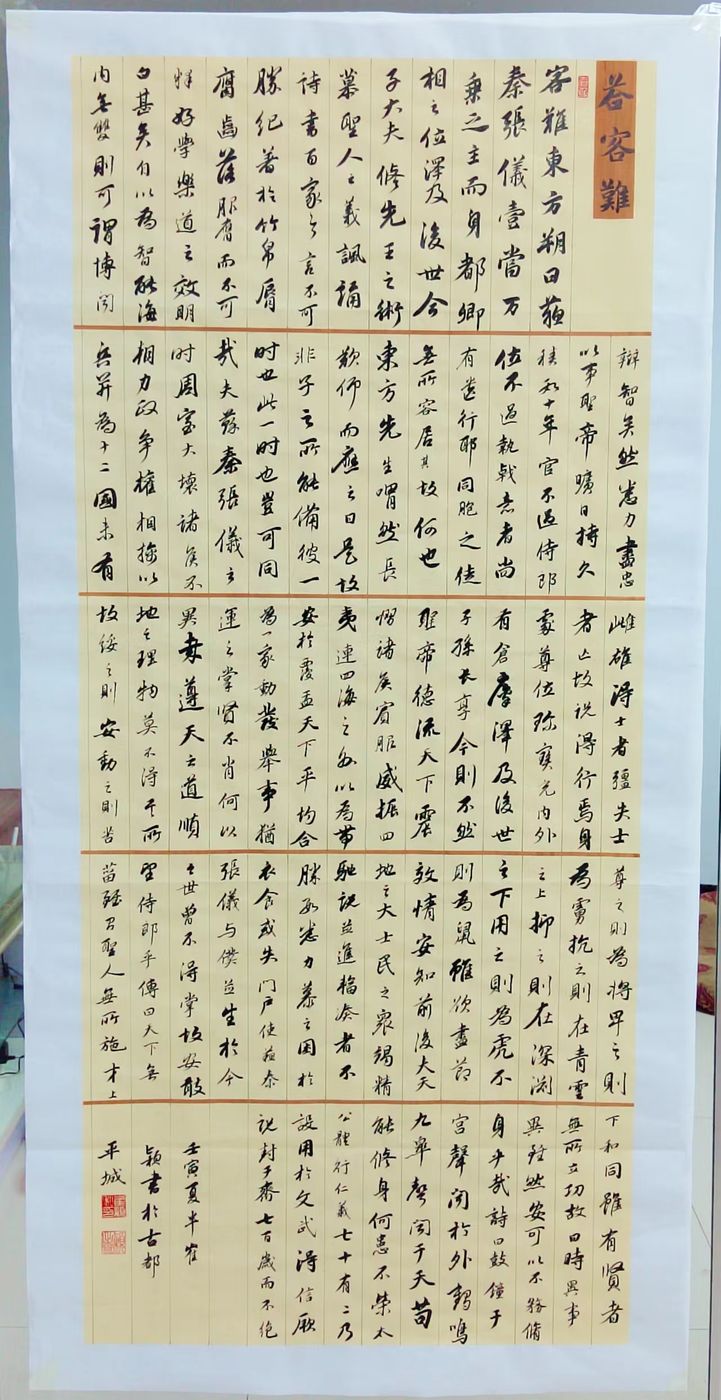 答客難
客難東方朔曰蘇
秦張儀壹當万
乘之主而身都卿
相之位澤及後世今
子大夫修先王之術
慕聖人之義諷誦
詩書百家之言不可
勝紀著於竹帛唇
腐齒落服膺而不可
釋好學樂道之效明
白甚矣自以為智能海
內無雙則可謂博聞
辯智矣然悉力盡忠
以事聖帝曠日持久
積數十年官不過侍郎
位不過執戟意者尚
有遺行耶同胞之徒
無所容居其故何也
東方先生喟然長
歎仰而應之曰是故
非子之所能備彼一
時也此一時也豈可同
哉夫蘇秦張儀之
時周室大壞諸侯不
朝力政爭權相擒以
兵并為十二國未有
雌雄得士者彊失士
者亡故說得行焉身
處尊位珍寶充內外
有倉廩澤及後世
子孫長享今則不然
聖帝德流天下震
慴諸侯賓服威振四
夷連四海之外以為帶
安於覆盂天下平均合
為一家動發舉事猶
運之掌賢不肖何以
異哉遵天之道順
地之理物莫不得其所
故綏之則安動之則苦
尊之則為將卑之則
為虜抗之則在青雲
之上抑之則在深淵
之下用之則為虎不
則為鼠雖欲盡節
效情安知前後夫天
地之大士民之眾竭精
馳說並進輻湊者不
勝數悉力慕之困於
衣食或失門戶使蘇秦
張儀與僕並生於今
之世曾不得掌故安敢
望侍郎乎傳曰天下無
菑雖有聖人無所施才上
下和同雖有賢者
無所立功故曰時異事
異雖然安可以不務脩
身乎哉詩曰鼓鐘于
宮聲聞於外鶴鳴
九皋聲聞于天苟
能修身何患不榮太
公體行仁義七十有二乃
設用於文武得信厥
說封于齊七百歲而不絕
壬寅夏半崔
穎書於古都
平城